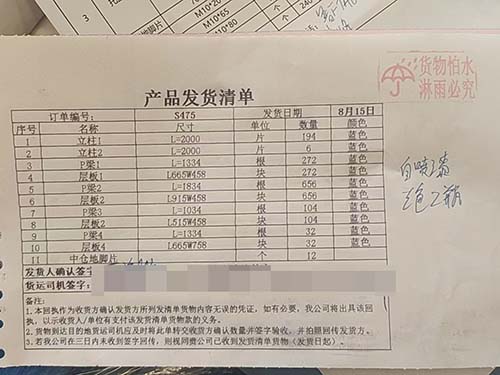 3
M10*20
M10*65
M10*80
个
240
货物怕水
淋雨必究
产品发货清单
订单编号: S475 发货日期 8月15日
序号 名称 尺寸 单位 数量 颜色
1 立柱1 L=2000 片 194 蓝色
2 立柱2 L=2000 片 6 蓝色
3 P梁1 L=1334 根 272 蓝色
4 层板1 L665W458 块 272 蓝色
5 P梁2 L=1834 根 656 蓝色
6 层板2 L915W458 块 656 蓝色
7 P梁3 L=1034 根 104 蓝色
8 层板2 L515W458 块 104 蓝色
9 P梁4 L=1334 根 32 蓝色
10 层板4 L665W758 块 32 蓝色
11 中仓地脚片 个 12
自喷漆
2瓶
发货人确认签字
货运司机签字:
备注:
1.本回执作为收货方确认发货方所列发清单货物内容无误的凭证，如有必要，我公司将出具该回
执，以示收货人/单位有支付该发货清单货物款的义务。
2.货物到达目的地货运司机应及时将此单转交收货方确认数量并签字验收，并拍照回传发货方。
3.若我公司在三日内未收到签字回传，则视同贵公司已收到发货清单货物（发货日起）。